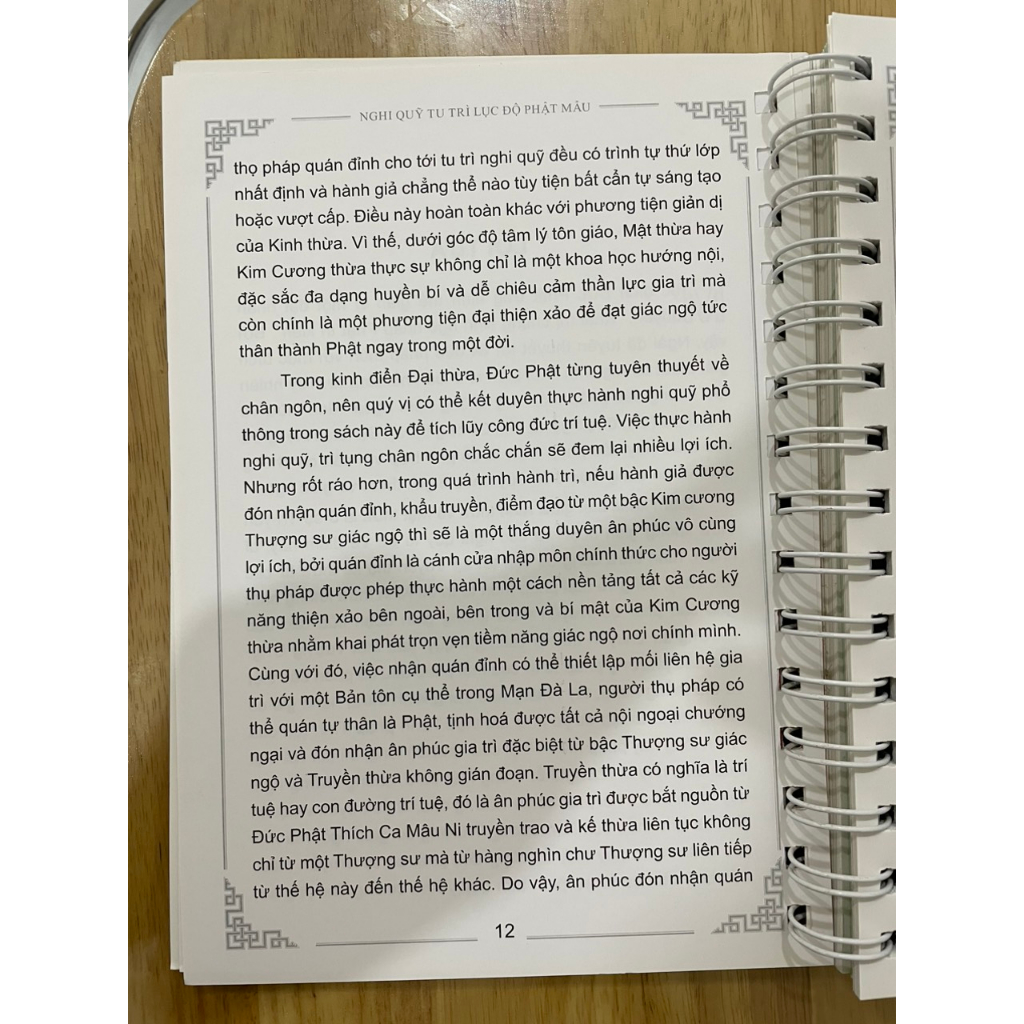 NGHI QUỸ TU TRÌ LỤC ĐỘ PHẬT MẪU
thọ pháp quán đỉnh cho tới tu trì nghi quỹ đều có trình tự thứ lớp
nhất định và hành giả chẳng thể nào tùy tiện bất cẩn tự sáng tạo
hoặc vượt cấp. Điều này hoàn toàn khác với phương tiện giản dị
của Kinh thừa. Vì thế, dưới góc độ tâm lý tôn giáo, Mật thừa hay
Kim Cương thừa thực sự không chỉ là một khoa học hướng nội,
đặc sắc đa dạng huyền bí và dễ chiêu cảm thần lực gia trì mà
còn chính là một phương tiện đại thiện xảo để đạt giác ngộ tức
thân thành Phật ngay trong một đời.
Trong kinh điển Đại thừa, Đức Phật từng tuyên thuyết về
chân ngôn, nên quý vị có thể kết duyên thực hành nghi quỹ phổ
thông trong sách này để tích lũy công đức trí tuệ. Việc thực hành
nghi quỹ, trì tụng chân ngôn chắc chắn sẽ đem lại nhiều lợi ích.
Nhưng rốt ráo hơn, trong quá trình hành trì, nếu hành giả được
đón nhận quán đỉnh, khẩu truyền, điểm đạo từ một bậc Kim cương
Thượng sư giác ngộ thì sẽ là một thắng duyên ân phúc vô cùng
lợi ích, bởi quán đỉnh là cánh cửa nhập môn chính thức cho người
thụ pháp được phép thực hành một cách nền tảng tất cả các kỹ
năng thiện xảo bên ngoài, bên trong và bí mật của Kim Cương
thừa nhằm khai phát trọn vẹn tiềm năng giác ngộ nơi chính mình.
Cùng với đó, việc nhận quán đỉnh có thể thiết lập mối liên hệ gia
trì với một Bản tôn cụ thể trong Mạn Đà La, người thụ pháp có
thể quán tự thân là Phật, tịnh hoá được tất cả nội ngoại chướng
ngại và đón nhận ân phúc gia trì đặc biệt từ bậc Thượng sư giác
ngộ và Truyền thừa không gián đoạn. Truyền thừa có nghĩa là trí
tuệ hay con đường trí tuệ, đó là ân phúc gia trì được bắt nguồn từ
Đức Phật Thích Ca Mâu Ni truyền trao và kế thừa liên tục không
chỉ từ một Thượng sư mà từ hàng nghìn chư Thượng sư liên tiếp
từ thế hệ này đến thế hệ khác. Do vậy, ân phúc đón nhận quán
12